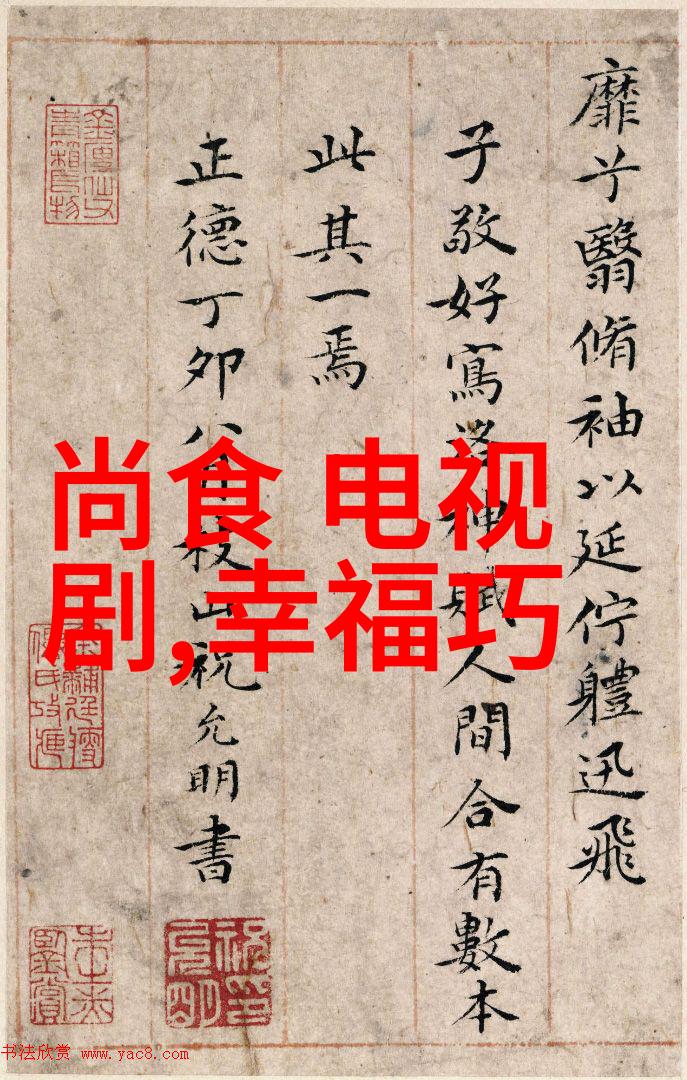 靡兮翳脩袖以延佇體迅飛
子敬好寫洛神賦人間合有數本
此其一焉
正德丁卯八月枝山祝允明書
尚食 电视
剧,幸福巧
书法欣赏 www.yac8.com